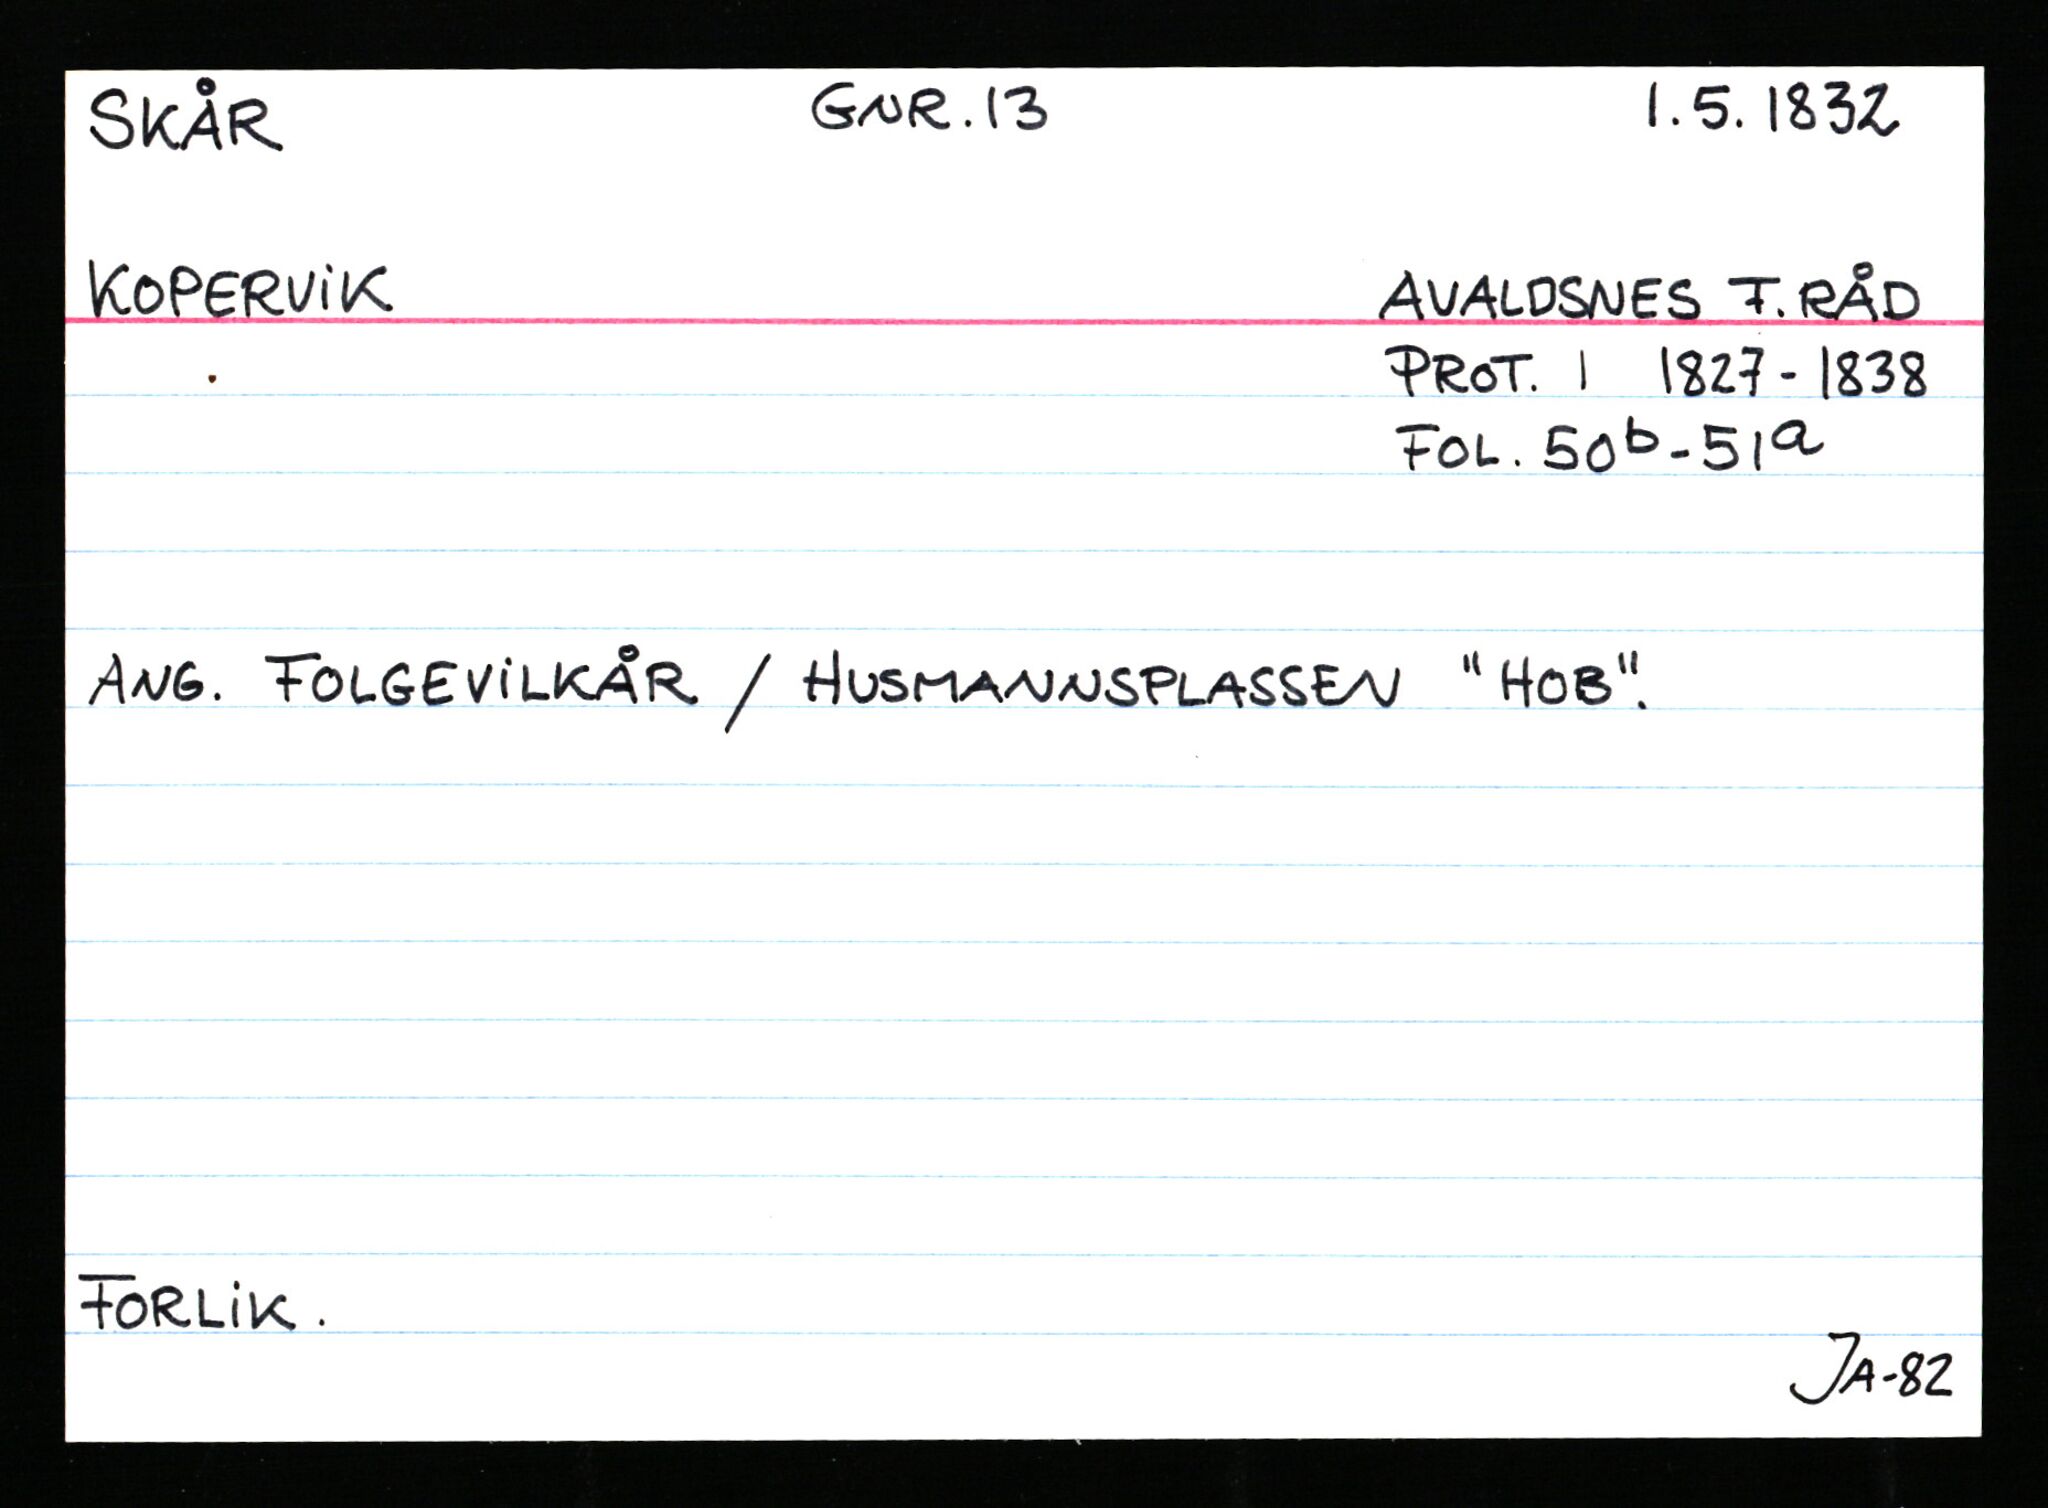 SKÅR GNR. 13 1.5.1832
KOPERVIK AVALDSNES F.RÅD
PROT. 1 1827-1838
FOL. 50b-51a
ANG. FOLGEVILKÅR / HUSMANNSPLASSEN "HOB".
FORLIK.
JA-82